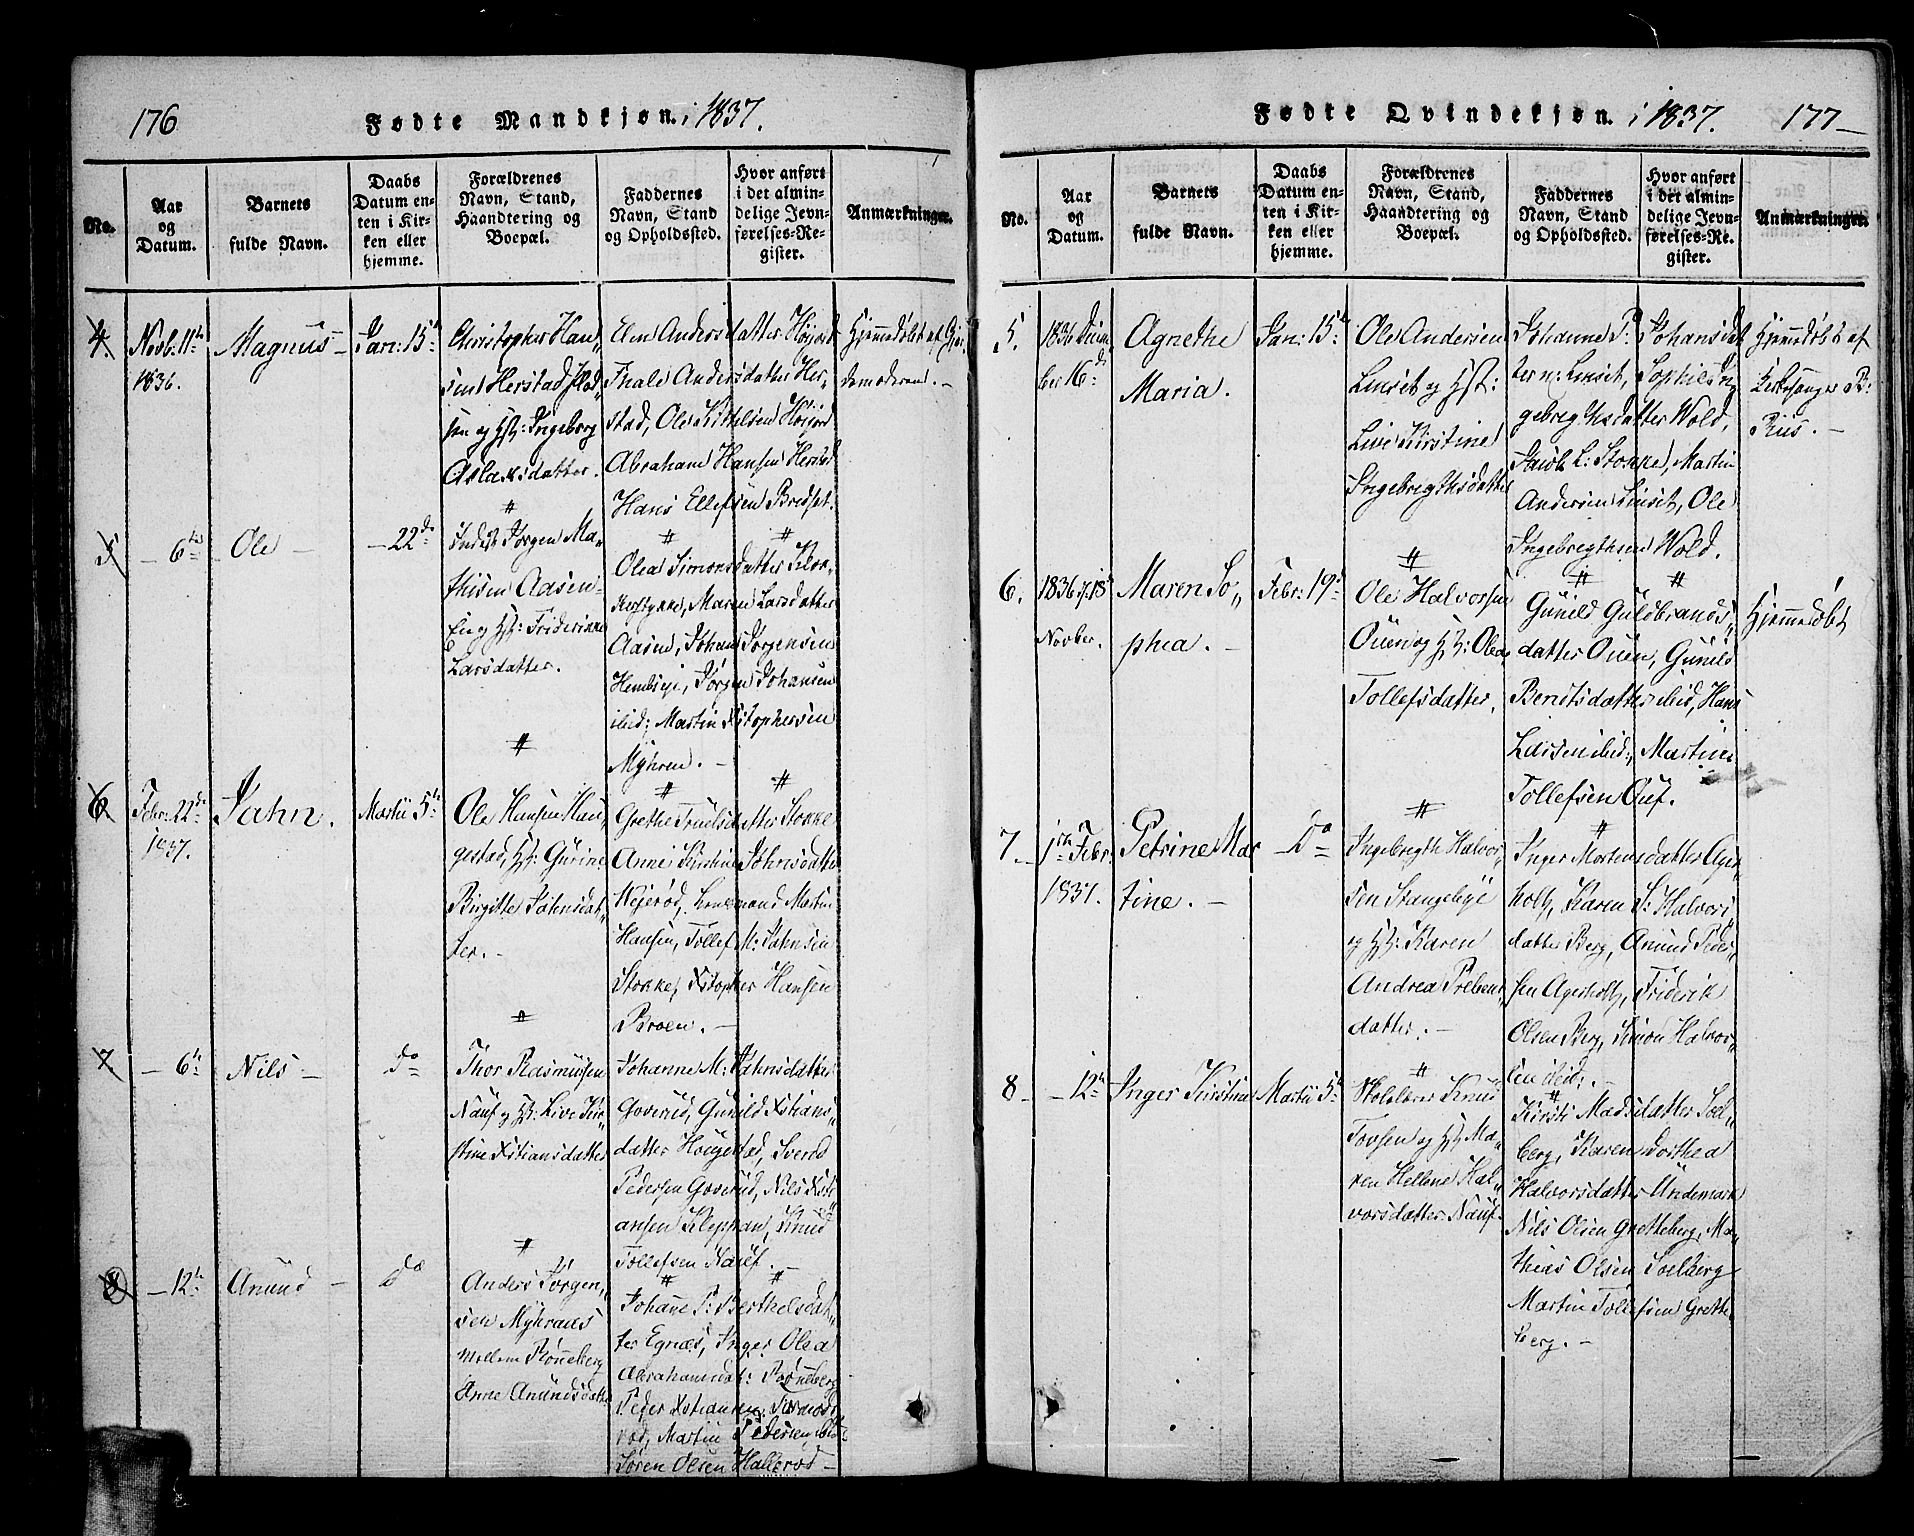 176 Fødte Mandkjøn. i 1837.
No.
Aar og Datum.
Barnets fulde Navn.
Daabs Datum enten i Kirken eller hjemme.
Forældrenes Navn, Stand, Haandtering og Boepæl.
Faddernes Navn, Stand og Opholdssted.
Hvor anført i det almindelige Jevnførelses-Register.
Anmærkninger.
4.
Novb: 11te
1836.
Magnus
Jan: 15de
Christopher Han„
sen Herstad
sen og Hst: Ingeborg
Aslaksdatter.
Elen Andersdatter Höijord
Thale Andersdatter Her„
stad, Ole Kittilsen Höijord
Abraham Hansen Herstad
Hans Ellefsen Bredset.
Hjemmedøbt af Gjor„
demoderen.
5
6te
Ole
22de
Jørgen Ma„
thisen Aasen
og Hst: Friderikke
Larsdatter.
Olea Simonsdatter Klok„
kerstykke, Maren Larsdatter
Aasen, Johan Jørgensen
Hembseje, Jørgen Johansen
ibid; Martin Xstophersen
Myhren.
6.
Febr: 22de
1837.
Jahn.
Martii 5te
Ole Hansen Hau„
gestad, Hst: Gurine
Birgitte Jahnsdat„
ter.
Grethe Truelsdatter Stokke
Anne Kirstine Jahnsdatter
Wejerød, Lensmand Martin
Hansen, Tollef M: Jahnsen
Stokke, Xstopher Hansen
Broen.
7.
6te
Nils
do
Thor Rasmussen
Nauf og Hst: Live Kir„
stine Xstiansdatter
Johanne M: Jahnsdatter
Goverud, Gunild Xstians„
datter Hougestad, Sverod
Pedersen Goverud, Nils Xsti„
ansen Klephan, Knud
Tollefsen Nauf.
8
12te
Anund
do
Anders Jørgen„
sen Myhrans
mellem Rönneberg
Anne Anundsdatter
Johane P: Berthelsdat„
ter Egnæs, Inger Olea
Abrahamsdat: Rönneberg
Peder Xstiansen
rød, Martin Pedersen
Søren Olsen Hallerød
Fødte Qvindekjøn. i 1837. 177
No.
Aar og Datum.
Barnets fulde Navn.
Daabs Datum enten i Kirken eller hjemme.
Forældrenes Navn, Stand, Haandtering og Boepæl.
Faddernes Navn, Stand og Opholdssted.
Hvor anført i det almindelige Jevnførelses-Re-gister.
Anmærkninger.
5.
1836 Decem
ber 16de
Agnethe
Maria.
Jan: 15de
Ole Andersen
Linset og Hst:
Live Kirstine
Ingebregthsdatter
Johanne P. Johansdat
ter Linset, Sophie In„
gebregthsdatter Wold,
Jacob L: Stokke, Martin
Andersen Linset, Ole
Ingebregthsen Wold.
Hjemmedøbt af
Kirkesanger B.
Riis.
6.
1836 18
Novber.
Maren So„
phia.
Febr: 19de
Ole Halvorsen
Ouen og Hst: Olea
Tollefsdatter.
Gunild Guldbrands„
datter Ouen, Gunild
Bendtsdatter ibid, Hans
Larsen ibid:, Martin
Tollefsen Ouf.
Hjemmedøbt
7.
1ste Febr:
1837.
Petrine Mar
tine.
do
Ingebregth Halvor„
sen Stangebye
og Hst: Karen
Andrea Preben„
datter.
Inger Mortensdatter Ager
holt, Karen S: Halvors„
datter Berg, Anund Peder„
sen Agerholt, Friderik
Olsen Berg, Simon Halvor„
sen ibid;
8
12te
Inger Kirstine
Martii 5te
Skolelærer Knud
Tovsen og Hst: Ma„
ren Hellene Hal„
vorsdatter Nauf.
Kirsti Madsdatter Soel„
berg, Karen Dorthea
Halvorsdatter Undemark
Nils Olsen Gretteberg, Ma„
thias Olsen Soelberg
Martin Tollefsen Grette
berg.